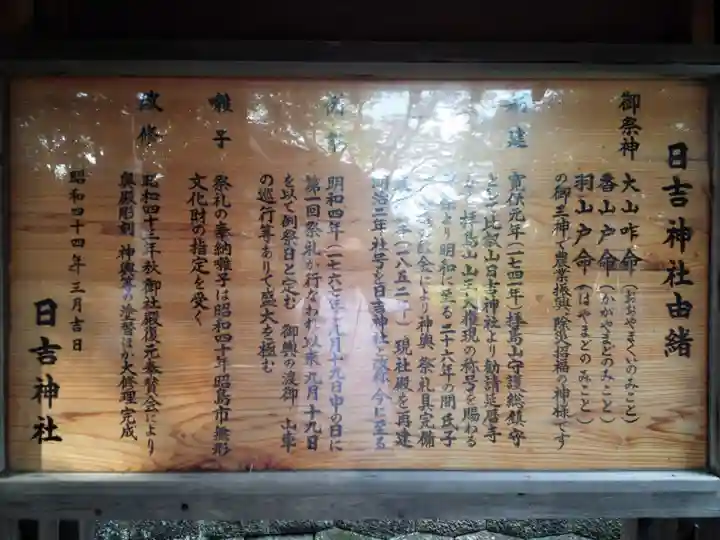 日吉神社由緒
御祭神 大山咋命(おおやまくいのみこと)
香山戸命(かがやまどのみこと)
羽山戸命(はやまどのみこと)
の御三神で農業振興、除災招福の神様です
建 寛保元年(一七四一年)拝島山守護総鎮守
として比叡山日吉神社より勧請延暦寺
拝島山山王大権現の称号を賜わる
年より明和に至る二十六年の間氏子
金により神輿、祭礼具完備
年(一八五二年)現社殿を再建
明治二年社号を日吉神社と改称今に至る
明和四年(一七六七年)九月十九日申の日に
第一回祭礼が行なわれ以来九月十九日
を以て例祭日と定む 御輿の渡御 山車
の巡行等ありて盛大を極む
囃子 祭礼の奉納囃子は昭和四十年昭島市無形
文化財の指定を受く
改修 昭和四十三年秋御社殿復元奉賛会により
奥殿彫刻 神輿等の塗替ほか大修理完成
昭和四十四年三月吉日
日吉神社